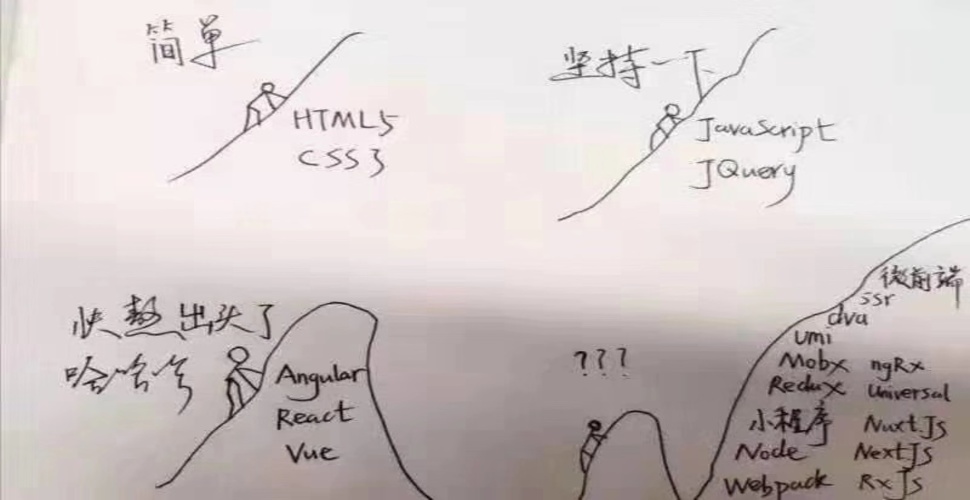 简单
HTML5
CSS3
坚持一下
JavaScript
JQuery
快熬出头了
哈哈哈
Angular
React
Vue
???
微前端
ssr
dva
umi
Mobx ngRx
Redux Universal
小程序 Nuxt.Js
Node NextJS
Webpack RxJs